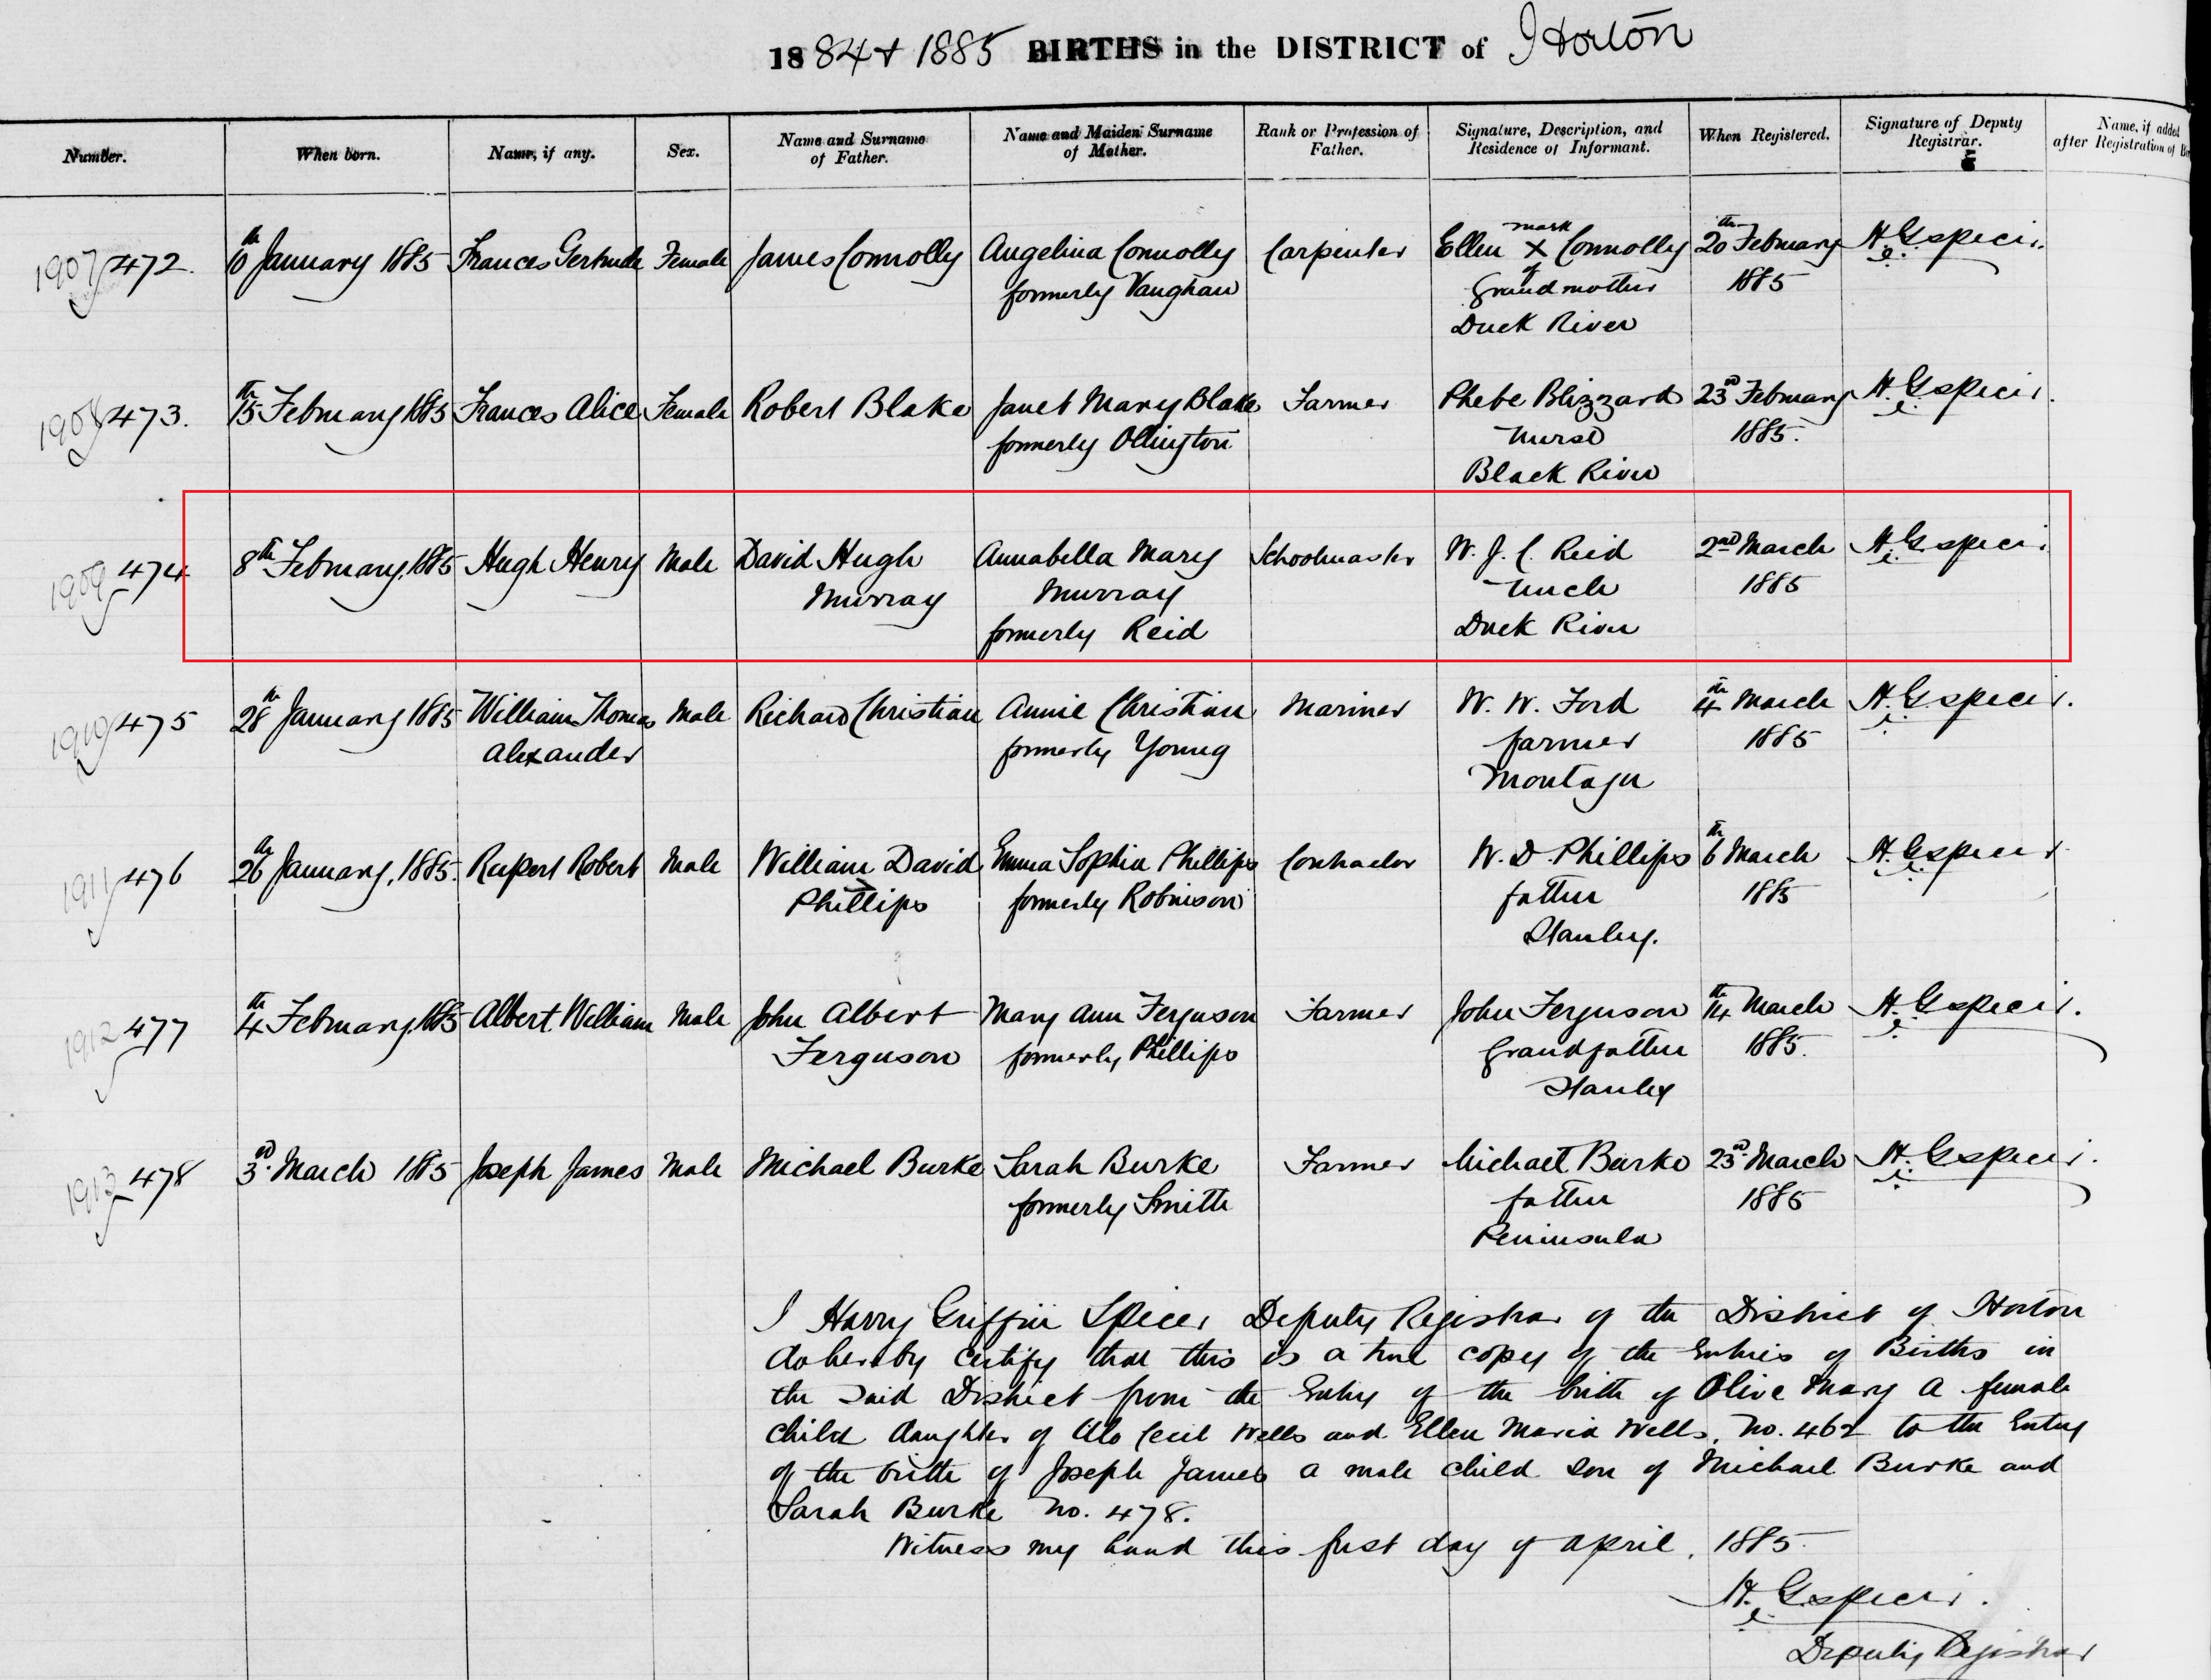 1884 & 1885 BIRTHS in the DISTRICT of Horton
Number. When born. Name, if any. Sex. Name and Surname of Father. Name and Maiden Surname of Mother. Rank or Profession of Father. Signature, Description, and Residence of Informant. When Registered. Signature of Deputy Registrar. Name, if added after Registration of
mark
1907 472. 6th January 1885 Frances Gertrude Female James Connolly Angelina Connolly Carpenter Ellen X Connolly 20th February H. G. Spicer
formerly Vaughan of grandmother 1885
Duck River
1908 473. 15th February 1885 Frances Alice Female Robert Blake Janet Mary Blake Farmer Phebe Blizzard 23rd February H. G. Spicer
formerly Ollington nurse 1885.
Black River
1909 474 8th February 1885 Hugh Henry Male David Hugh Annabella Mary Schoolmaster W. J. C. Reid 2nd March H. G. Spicer
Murray Murray uncle 1885
formerly Reid Duck River
1910 475 28th January 1885 William Thomas Male Richard Christian Annie Christian Mariner W. W. Ford 4th March H. G. Spicer.
Alexander formerly Young farmer 1885
Montagu
1911 476 26th January, 1885. Rupert Robert Male William David Emma Sophia Phillips Contractor W. D. Phillips 6th March H. G. Spicer
Phillips formerly Robinson father 1885
Stanley.
1912 477 4th February 1885 Albert William Male John Albert Mary Ann Ferguson Farmer John Ferguson 14th March H. G. Spicer.
Ferguson formerly Phillips grandfather 1885.
Stanley
1913 478 3rd March 1885 Joseph James Male Michael Burke Sarah Burke Farmer Michael Burke 23rd March H. G. Spicer.
formerly Smith father 1885
Peninsula
I Harry Griffin Spicer Deputy Registrar of the District of Horton
do hereby certify that this is a true copy of the Entries of Births in
the said District from the Entry of the birth of Olive Mary a female
child daughter of Alo Cecil Wells and Ellen Maria Wells, No. 462 to the Entry
of the birth of Joseph James a male child son of Michael Burke and
Sarah Burke No. 478.
Witness my hand this first day of April, 1885.
H. G. Spicer.
Deputy Registrar